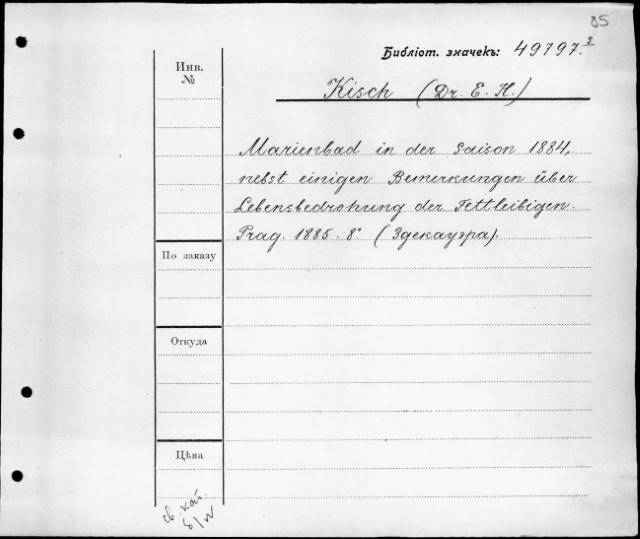 85
Библіот. значекъ: 49797.³
Инв.
№
Kisch (Dr. E. H.)
Marienbad in der Saison 1884,
nebst einigen Bemerkungen über
Lebensbedrohung der Fettleibigen.
Prag. 1885. 8°. (Здекауэра).
По заказу
Откуда
Цѣна
св. кат.
б/н